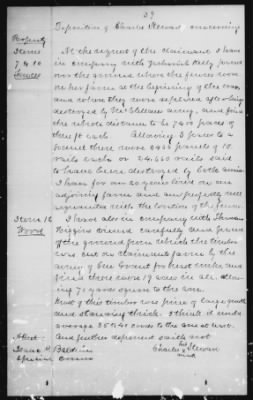 39
Deposition of Charles Stewart concerning
Property
Items
7, 9 & 10
Fences
At the request of the claimant I have
in company with Jedediah Kelly passed
over the ground where the fences were
on her farm at the beginning of the war,
and where they were replaced after being
destroyed by the
army, and find
the whole distance to be
paces of
three ft each. Allowing 3 paces to a
pannel there were
pannels of 10
rails each or 24,660 rails said
to have been destroyed by both armies
I have for over 20 years lived on an
adjoining farm and am perfectly well
acquainted with the location of the fences.
Item 12
Wood
I have also in company with Thomas
Higgins viewed carefully and paced
off the ground from which the timber
was cut on claimants farm by the
army of Gen
first under and
find there were 19 acres in all. Allow
ing 70 yards square to the acre.
Most of this timber was pine of large growth
and standing thick. I think it would
average 35 to 40 cords to the one acre.
And further deponent saith not
Attest:
Isaac P. Baldwin
Special Comr
Charles his Stewart
mark